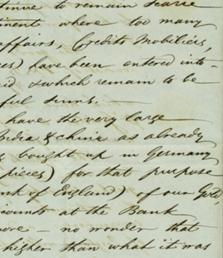 tinue to remain scarce
tinent where too many
affairs, Credits Mobiliers,
es) have been entered into
id & which remain to be
ful sums. —
have the very large
India & China as already
bought up in Germany
pieces) for that purpose
nk of England) of our Gold
counts at the Bank
ore — no wonder that
higher than what it was